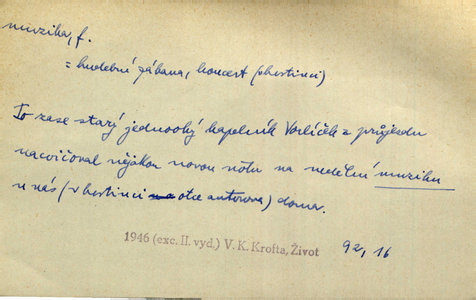 muzika, f.
= hudební zábava, koncert (v hostinci)
To zase starý jednooký kapelník Vorlíček z průjezdu
nacvičoval nějakou novou nótu na nedělní muziku
u nás (v hostinci otce autorova) doma.
1946 (exc. II. vyd.) V. K. Krofta, Život 92, 16